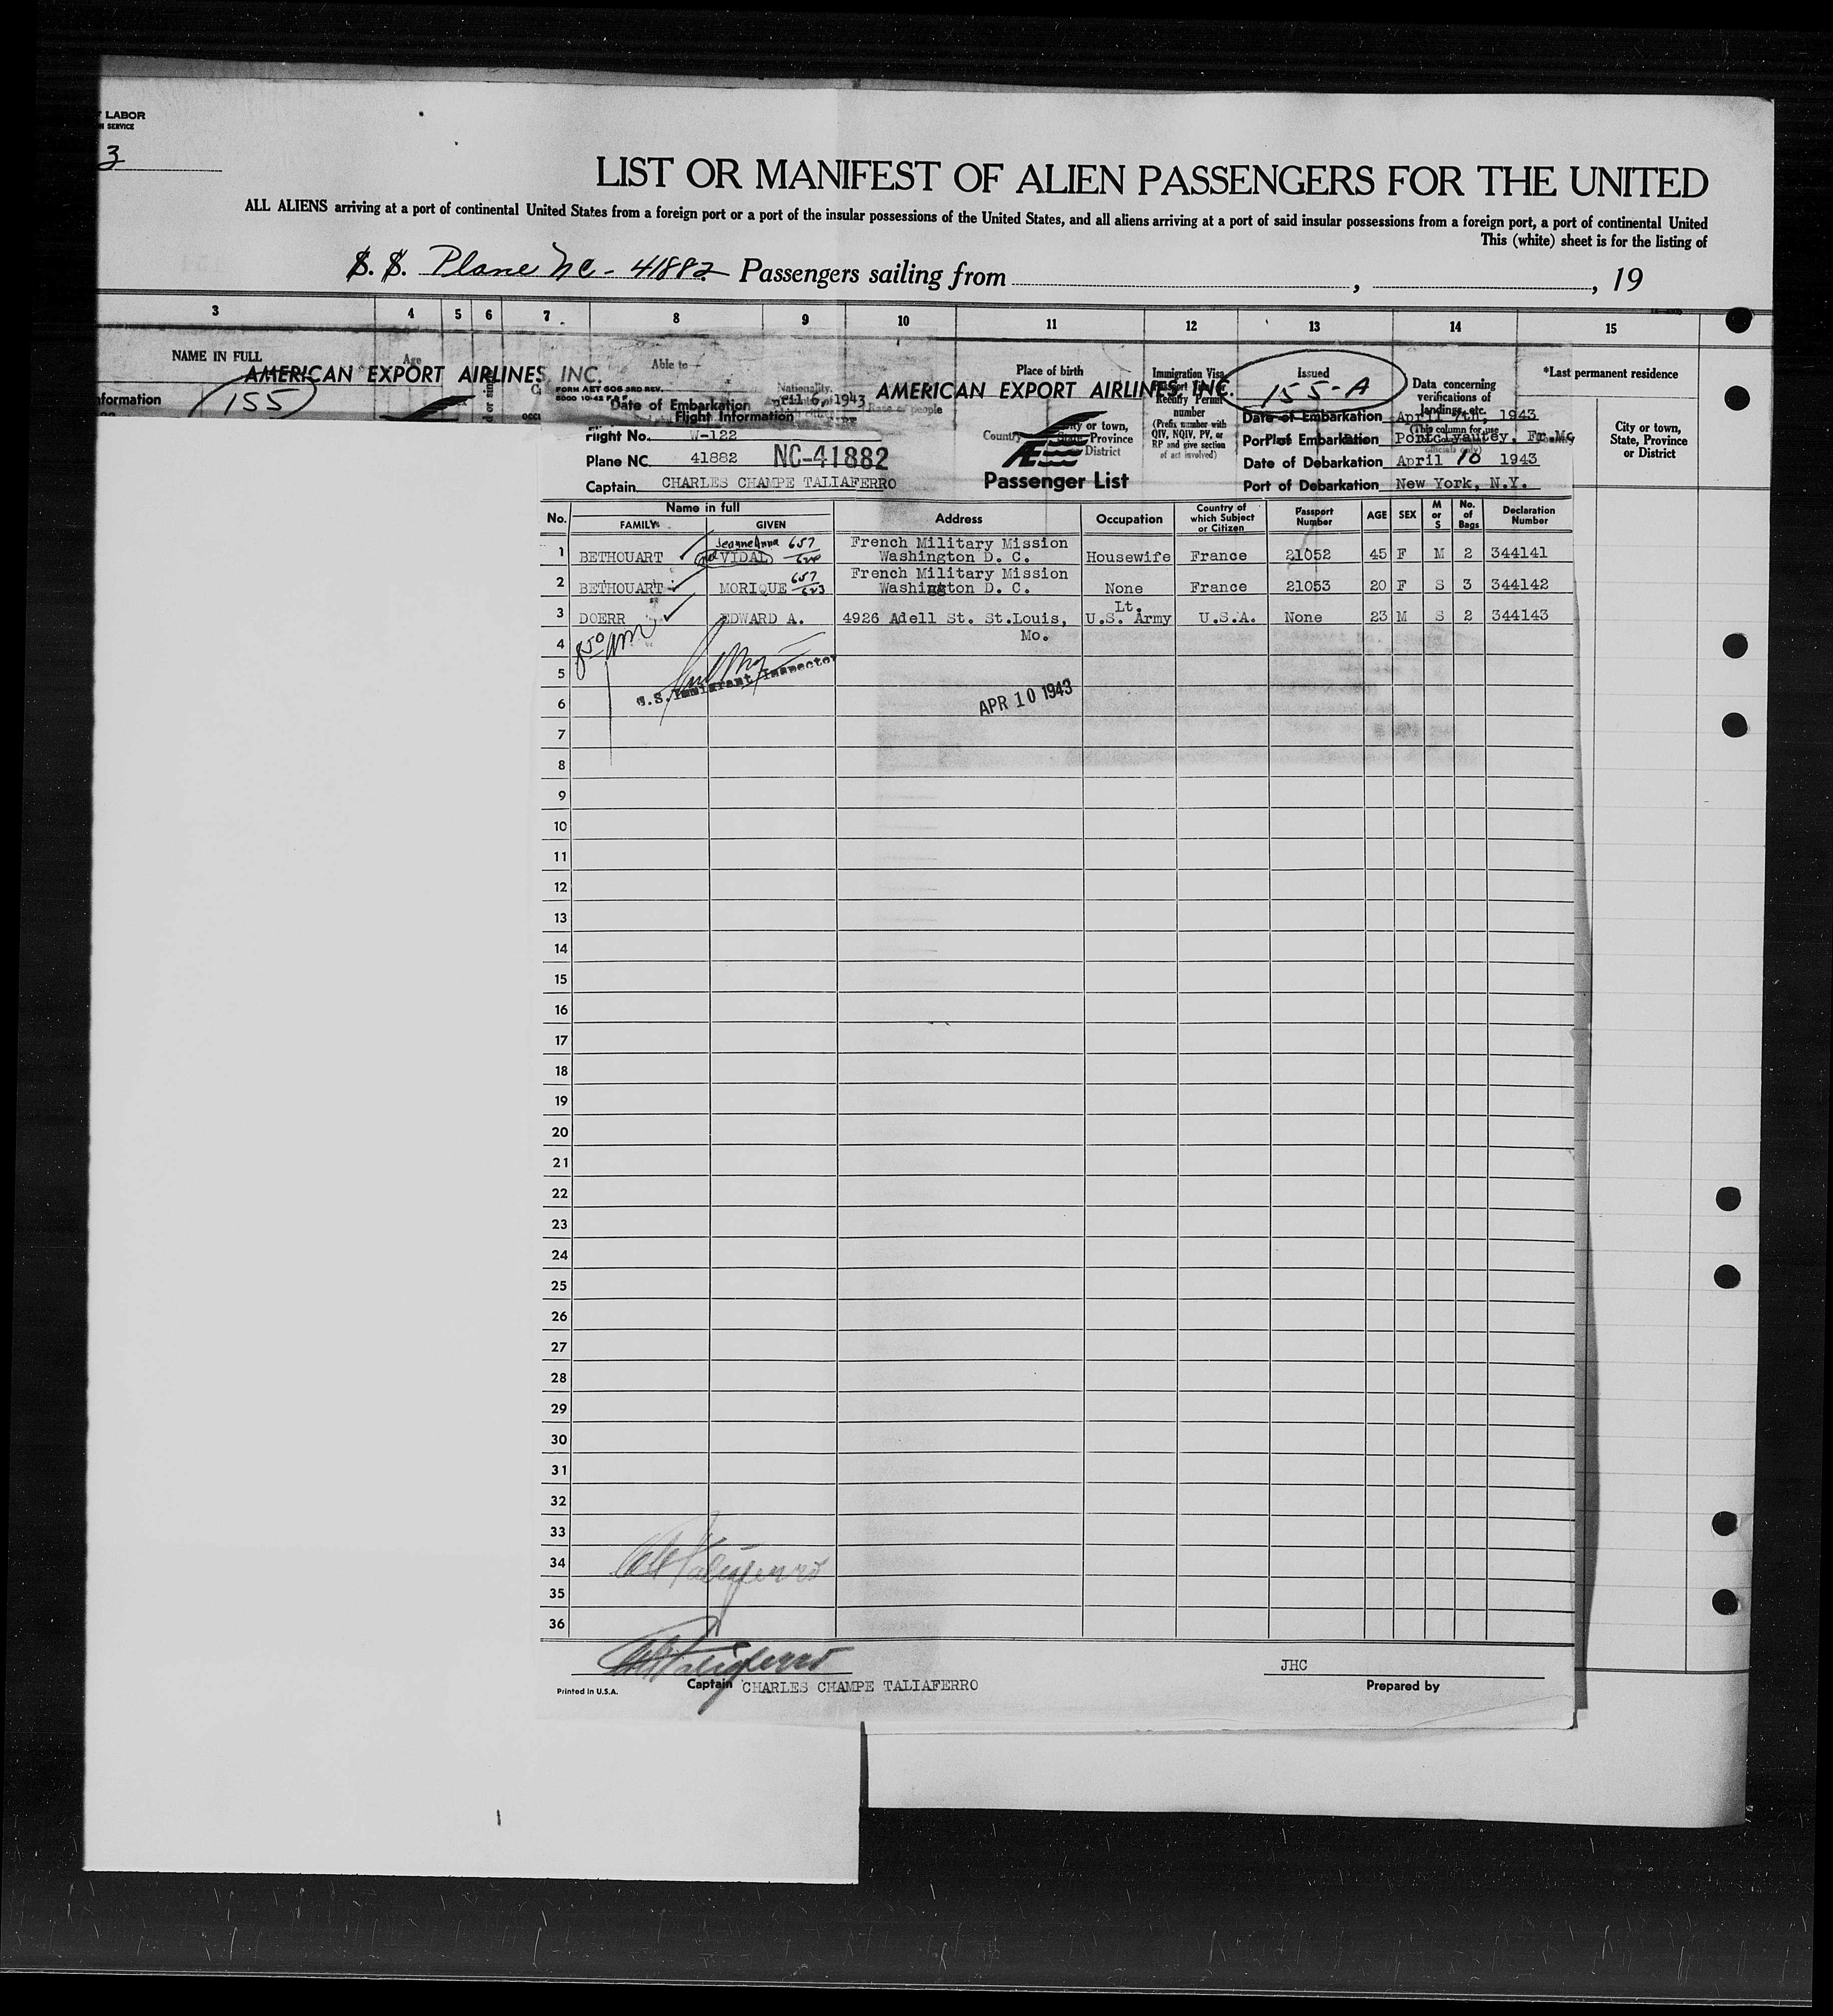 LABOR
SERVICE
3
LIST OR MANIFEST OF ALIEN PASSENGERS FOR THE UNITED
ALL ALIENS arriving at a port of continental United States from a foreign port or a port of the insular possessions of the United States, and all aliens arriving at a port of said insular possessions from a foreign port, a port of continental United
This (white) sheet is for the listing of
S. S. Plane NC - 41882 Passengers sailing from , , 19
3 4 5 6 7 8 9 10 11 12 13 14 15
NAME IN FULL Age Able to Place of birth Immigration Visa, Issued Data concerning verifications of landings, etc. *Last permanent residence
AMERICAN EXPORT AIRLINES INC.
155
FORM AET 606 3RD REV.
Date of Embarkation April 6, 1943
City or town, State, Province or District
AMERICAN EXPORT AIRLINES INC.
155-A
Flight Information
Date of Embarkation April 7th, 1943
Flight No. W-122
Port of Embarkation Port Lyautey, Fr.Mo
Plane NC 41882 NC-41882
Date of Debarkation April 10 1943
Captain CHARLES CHAMPE TALIAFERRO
Passenger List
Port of Debarkation New York, N.Y.
No. Name in full FAMILY GIVEN Address Occupation Country of which Subject or Citizen Passport Number AGE SEX M or S No. of Bags Declaration Number
Jeanne Anna 657
1 BETHOUART VIDAL French Military Mission Washington D. C. Housewife France 21052 45 F M 2 344141
2 BETHOUART MORIQUE 657 623 French Military Mission Washington D. C. None France 21053 20 F S 3 344142
3 DOERR EDWARD A. 4926 Adell St. St.Louis, Mo. Lt. U.S. Army U.S.A. None 23 M S 2 344143
4
850 am
5
U.S. Immigrant Inspector
6
APR 10 1943
7
8
9
10
11
12
13
14
15
16
17
18
19
20
21
22
23
24
25
26
27
28
29
30
31
32
33
34
35
36
JHC
Printed in U.S.A.
Captain CHARLES CHAMPE TALIAFERRO
Prepared by